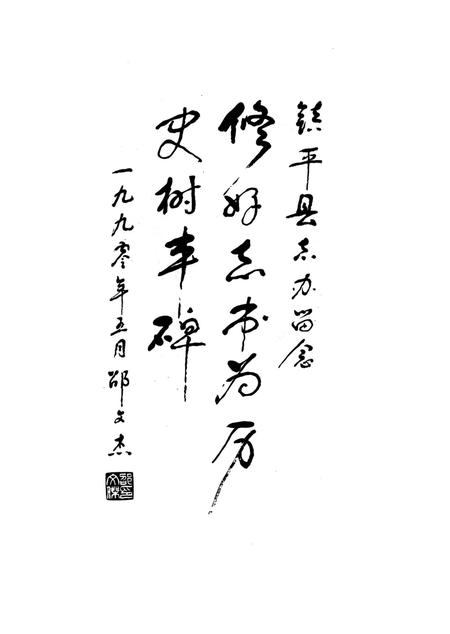 镇平县志办留念
修好志书为历
史树丰碑
一九九零年五月 邵文杰
邵文杰印